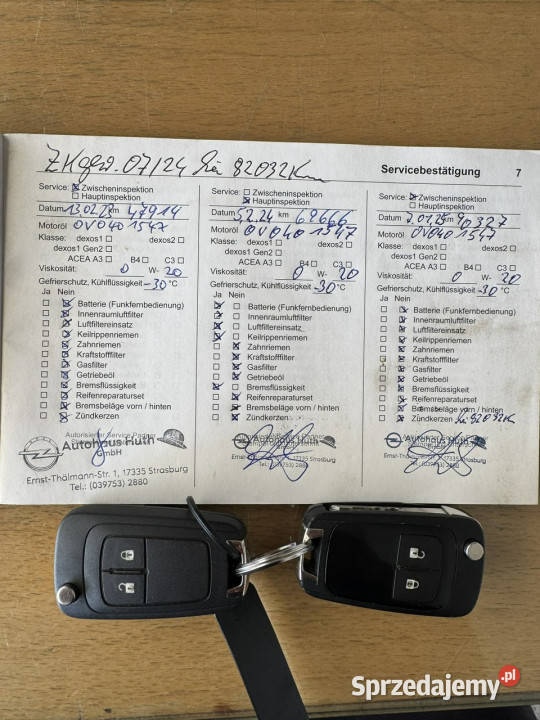 ZKgew. 07/24 bei 82032Km
Servicebestätigung 7
Service: ☒ Zwischeninspektion
☐ Hauptinspektion
Datum 13.02.23 km 47914
Motoröl OV0401547
Klasse: dexos1 ☐ dexos2 ☐
dexos1 Gen2 ☐
ACEA A3 ☐ B4 ☐ C3 ☐
Viskosität: 0 W- 20
Gefrierschutz, Kühlflüssigkeit -30 °C
Ja Nein
☐ ☒ Batterie (Funkfernbedienung)
☐ ☒ Innenraumluftfilter
☐ ☒ Luftfiltereinsatz
☐ ☒ Keilrippenriemen
☐ ☒ Zahnriemen
☐ ☒ Kraftstofffilter
☐ ☒ Gasfilter
☐ ☒ Getriebeöl
☐ ☒ Bremsflüssigkeit
☐ ☒ Reifenreparaturset
☐ ☒ Bremsbeläge vorn / hinten
☐ ☒ Zündkerzen
Autorisierter Service Partner
Autohaus Huth
GmbH
Ernst-Thälmann-Str. 1, 17335 Strasburg
Tel.: (039753) 2880
Service: ☐ Zwischeninspektion
☒ Hauptinspektion
Datum 5.2.24 km 68666
Motoröl OV0401547
Klasse: dexos1 ☐ dexos2 ☐
dexos1 Gen2 ☐
ACEA A3 ☐ B4 ☐ C3 ☐
Viskosität: 0 W- 20
Gefrierschutz, Kühlflüssigkeit -30 °C
Ja Nein
☒ ☐ Batterie (Funkfernbedienung)
☒ ☐ Innenraumluftfilter
☒ ☐ Luftfiltereinsatz
☒ ☐ Keilrippenriemen
☐ ☒ Zahnriemen
☐ ☒ Kraftstofffilter
☐ ☒ Gasfilter
☐ ☒ Getriebeöl
☒ ☐ Bremsflüssigkeit
☐ ☒ Reifenreparaturset
☐ ☒ Bremsbeläge vorn / hinten
☐ ☒ Zündkerzen
Autohaus Huth
17335 Strasburg
Tel.: (039753) 2880
Service: ☒ Zwischeninspektion
☐ Hauptinspektion
Datum 7.01.25 km 90327
Motoröl OV0401547
Klasse: dexos1 ☐ dexos2 ☐
dexos1 Gen2 ☐
ACEA A3 ☐ B4 ☐ C3 ☐
Viskosität: 0 W- 20
Gefrierschutz, Kühlflüssigkeit -30 °C
Ja Nein
☐ ☒ Batterie (Funkfernbedienung)
☐ ☒ Innenraumluftfilter
☐ ☒ Luftfiltereinsatz
☐ ☒ Keilrippenriemen
☐ ☒ Zahnriemen
☐ ☒ Kraftstofffilter
☐ ☒ Gasfilter
☐ ☒ Getriebeöl
☐ ☒ Bremsflüssigkeit
☐ ☒ Reifenreparaturset
☐ ☒ Bremsbeläge vorn / hinten
☐ ☒ Zündkerzen bei 82032Km
Autohaus Huth
17335 Strasburg
Tel.: (039753) 2880
Sprzedajemy.pl